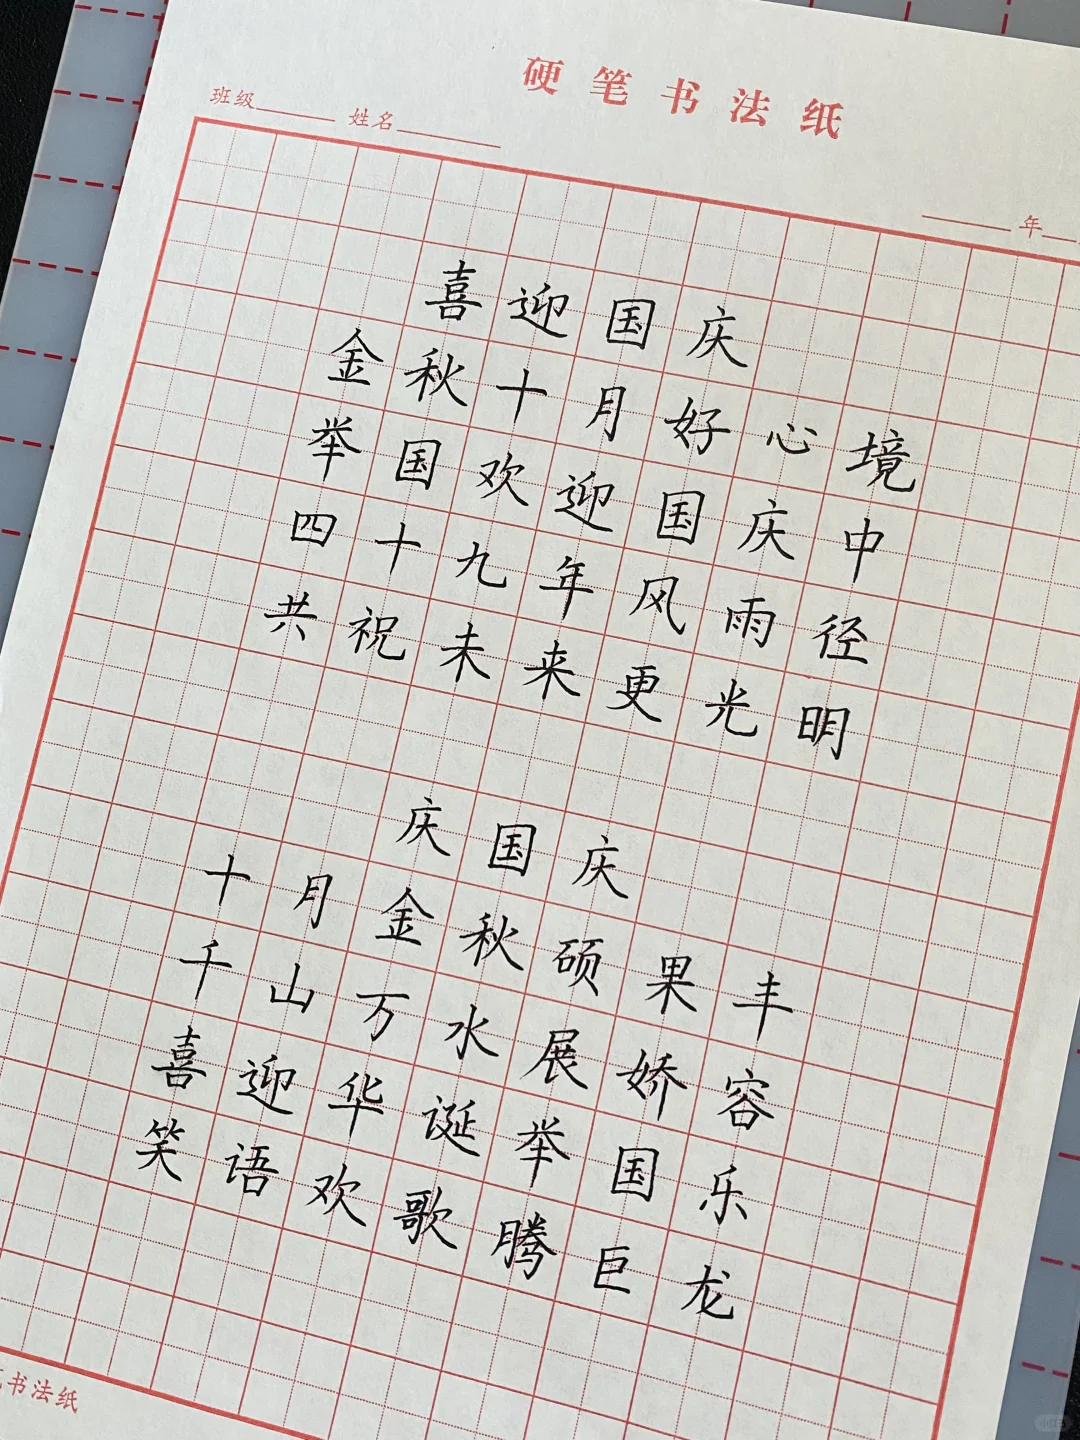 硬笔书法纸
班级 姓名
年
喜迎国庆
金秋十月好心境
举国欢迎国庆中
四十九年风雨径
共祝未来更光明
庆国庆
十月金秋硕果丰
千山万水展娇容
喜迎华诞举国乐
笑语欢歌腾巨龙
书法纸